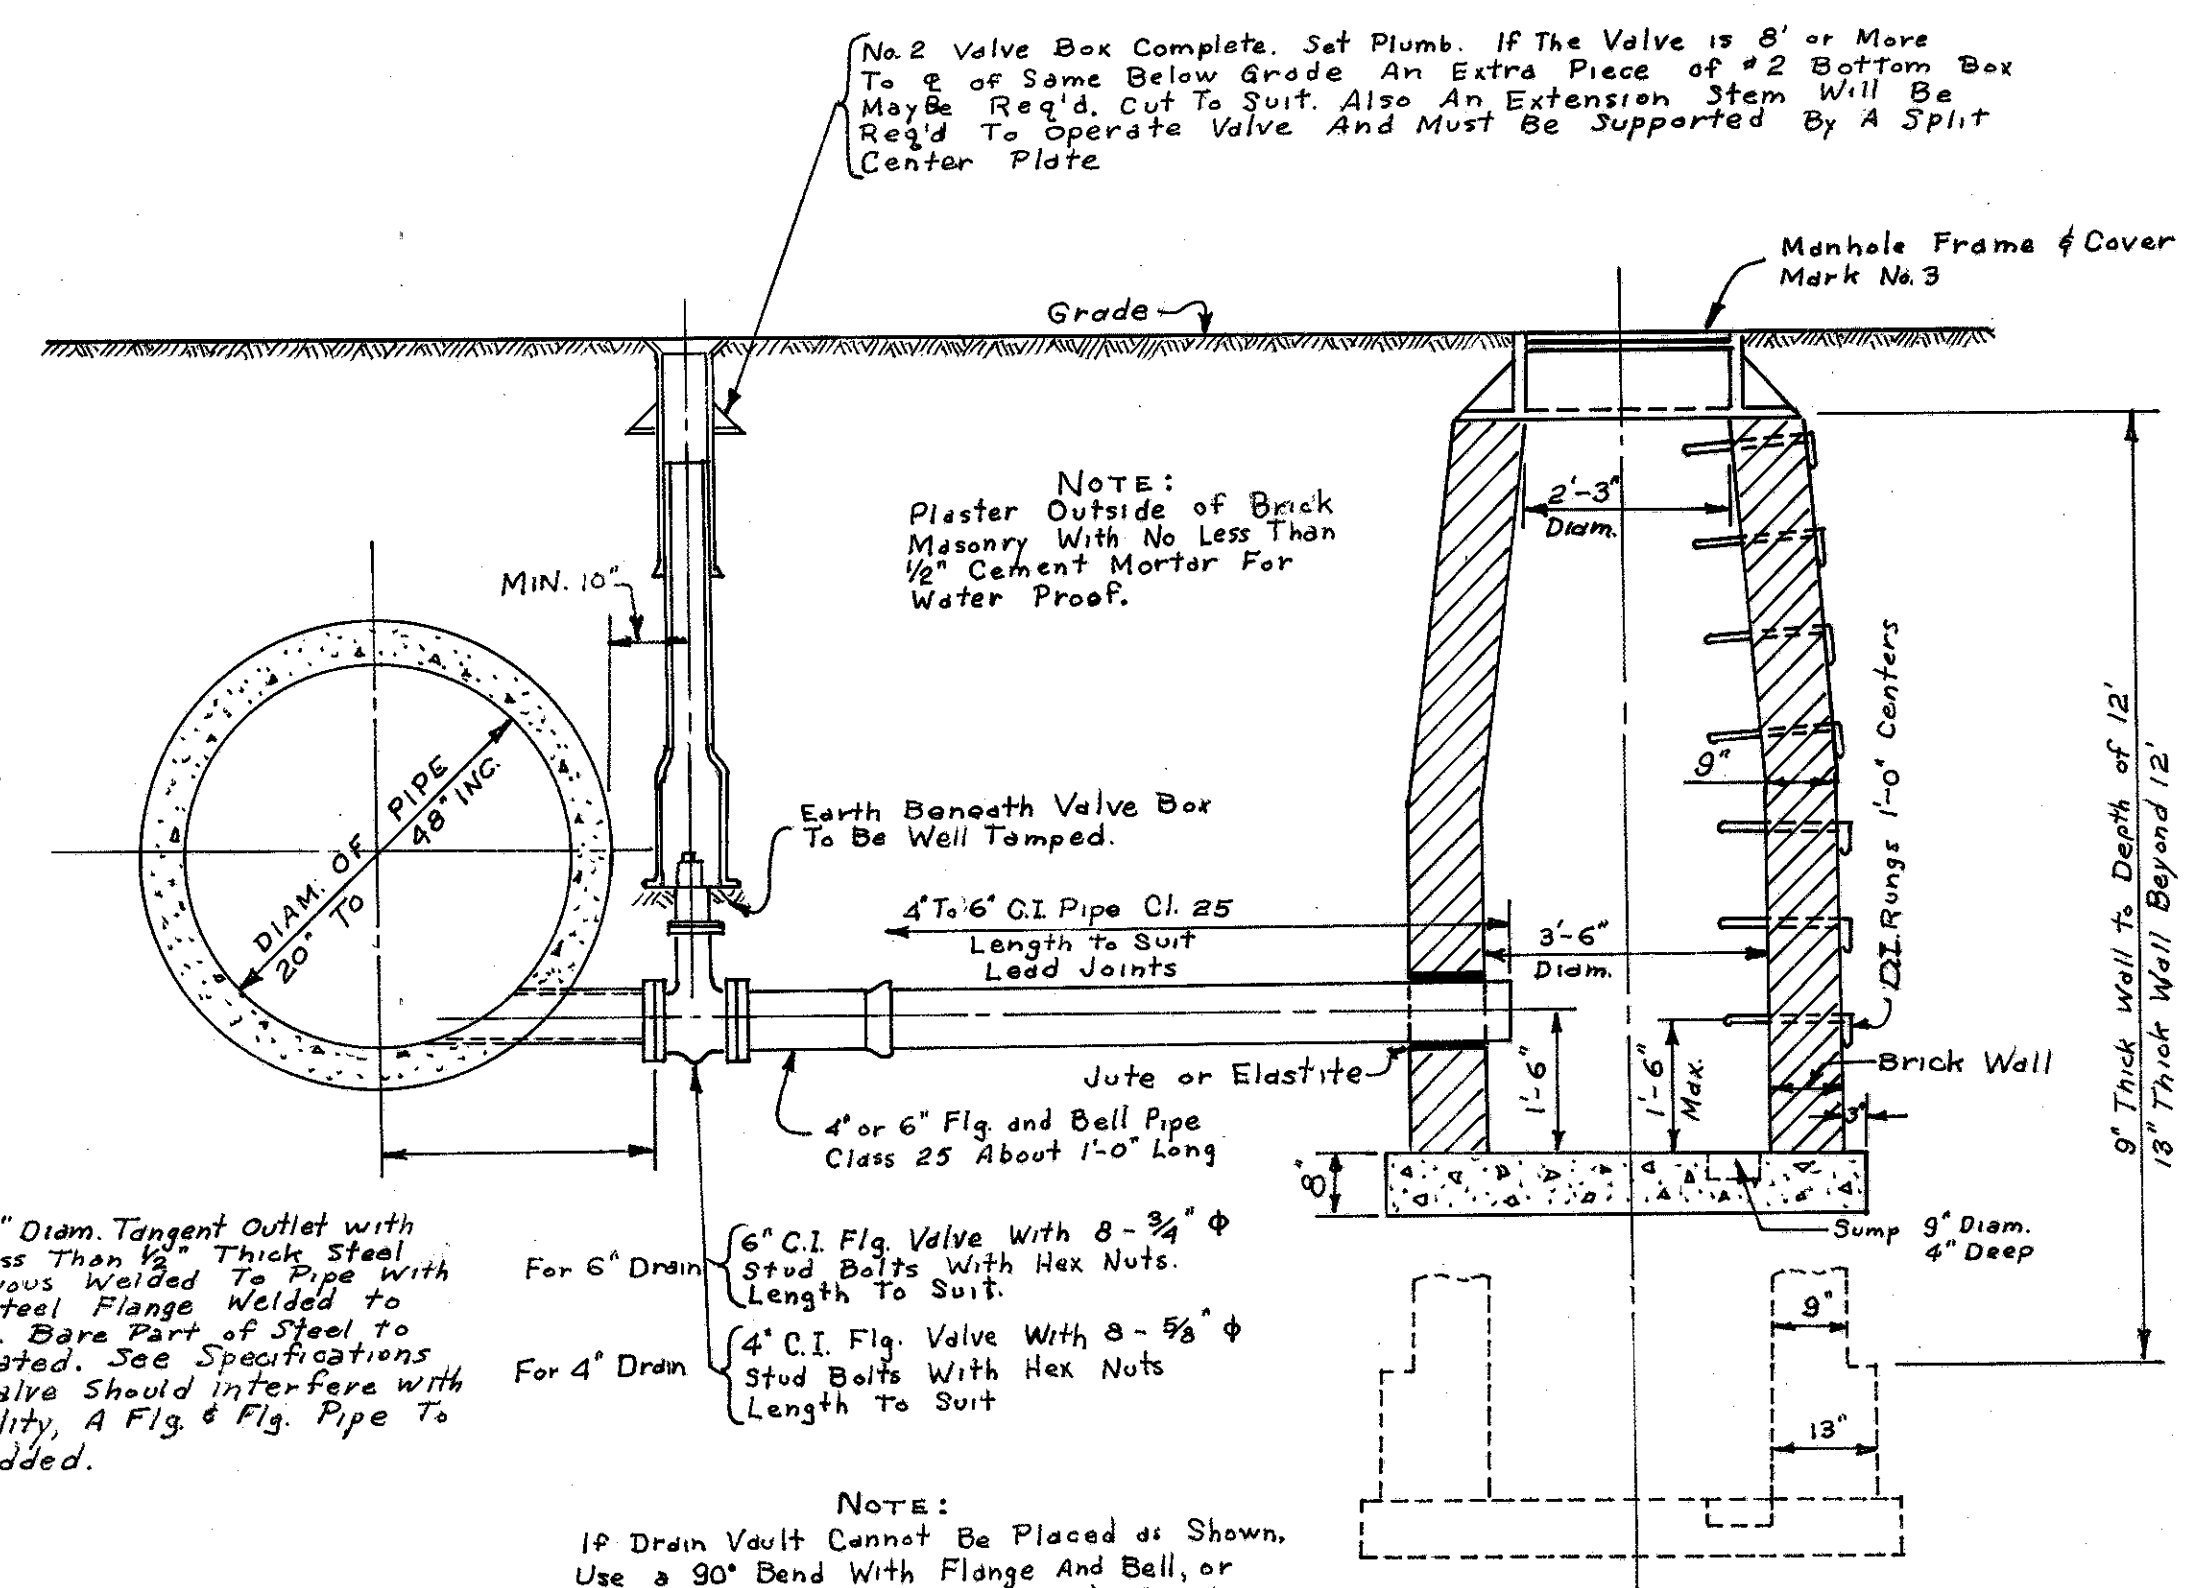 No. 2 Valve Box Complete. Set Plumb. If The Valve is 8' or More
To ℄ of Same Below Grade An Extra Piece of #2 Bottom Box
May Be Req'd. Cut To Suit. Also An Extension Stem Will Be
Req'd To Operate Valve And Must Be Supported By A Split
Center Plate
Manhole Frame & Cover
Mark No. 3
Grade
NOTE:
Plaster Outside of Brick
Masonry With No Less Than
1/2" Cement Mortar For
Water Proof.
2'-3"
Diam.
MIN. 10"
DIAM. OF PIPE
20" TO 48" INC.
9"
Earth Beneath Valve Box
To Be Well Tamped.
4" To 6" C.I. Pipe Cl. 25
Length to Suit
Lead Joints
3'-6"
Diam.
Rungs 1'-0" Centers
9" Thick Wall to Depth of 12'
13" Thick Wall Beyond 12'
Jute or Elastite
1'-6"
1'-6"
Max.
Brick Wall
3"
4" or 6" Flg. and Bell Pipe
Class 25 About 1'-0" Long
8"
Sump 9" Diam.
4" Deep
" Diam. Tangent Outlet with
ss Than 1/2" Thick Steel
ous Welded To Pipe with
teel Flange Welded to
. Bare Part of Steel to
ated. See Specifications
alve Should interfere with
lity, A Flg. & Flg. Pipe To
dded.
For 6" Drain
6" C.I. Flg. Valve With 8 - 3/4" Φ
Stud Bolts With Hex Nuts.
Length To Suit.
For 4" Drain
4" C.I. Flg. Valve With 8 - 5/8" Φ
Stud Bolts With Hex Nuts
Length To Suit
9"
13"
NOTE:
If Drain Vault Cannot Be Placed as Shown,
Use a 90° Bend With Flange And Bell, or